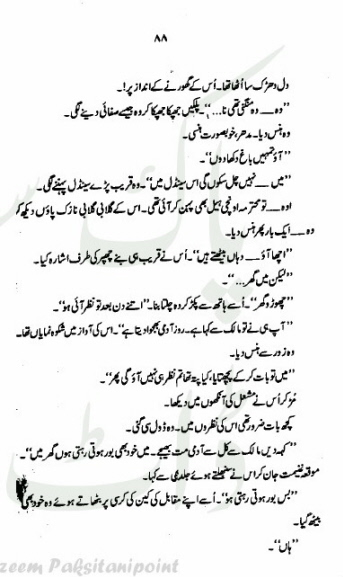 ۸۸
دل دھڑک سا اُٹھا تھا۔ اُس کے گھورنے کے انداز پر!۔
”وہ — وہ منگنی تھی نا…“۔ پلکیں جھپکا جھپکا کر وہ جیسے صفائی دینے لگی۔
وہ ہنس دیا۔ مدھر، خوبصورت ہنسی۔
”آؤ تمہیں باغ دکھا دوں“۔
”میں — نہیں چل سکوں گی اس سینڈل میں“۔ وہ قریب پڑے سینڈل پہننے لگی۔
اوہ — تو محترمہ اونچی ہیل بھی پہن کر آئی تھی۔ اس کے گلابی گلابی نازک پاؤں دیکھ کر
وہ — ایک بار پھر ہنس دیا۔
”اچھا آؤ — وہاں بیٹھتے ہیں“۔ اُس نے قریب ہی بنے چھپر کی طرف اشارہ کیا۔
”لیکن میں گھر…“۔
”چھوڑو گھر“۔ اُسے ہاتھ سے پکڑ کر وہ چلتا بنا۔ ”اتنے دن بعد تو نظر آئی ہو“۔
”آپ ہی نے تو مالک سے کہا ہے۔ روز آدمی بھجوا دیتا ہے“۔ اس کی آواز میں شکوہ نمایاں تھا۔
وہ زور سے ہنس دیا۔
”میں تو بات کر کے پچھتایا، کیا پتہ تھا تم نظر ہی نہیں آؤ گی پھر“۔
مُڑ کر اُس نے مشعل کی آنکھوں میں دیکھا۔
کچھ بات ضرور تھی اس کی نظروں میں۔ وہ ڈول سی گئی۔
”کہہ دیں مالک سے کل سے آدمی مت بھیجے۔ میں خود بھی بور ہوتی رہتی ہوں گھر میں“۔
موقعہ غنیمت جان کر اس نے سنبھلتے ہوئے جلدی سے کہا۔
”بس بور ہوتی رہتی ہو“۔ اُسے اپنے مقابل کی کین کی کرسی پر بٹھاتے ہوئے وہ خود بھی
بیٹھ گیا۔
”ہاں“۔
zeem Paksitanipoint